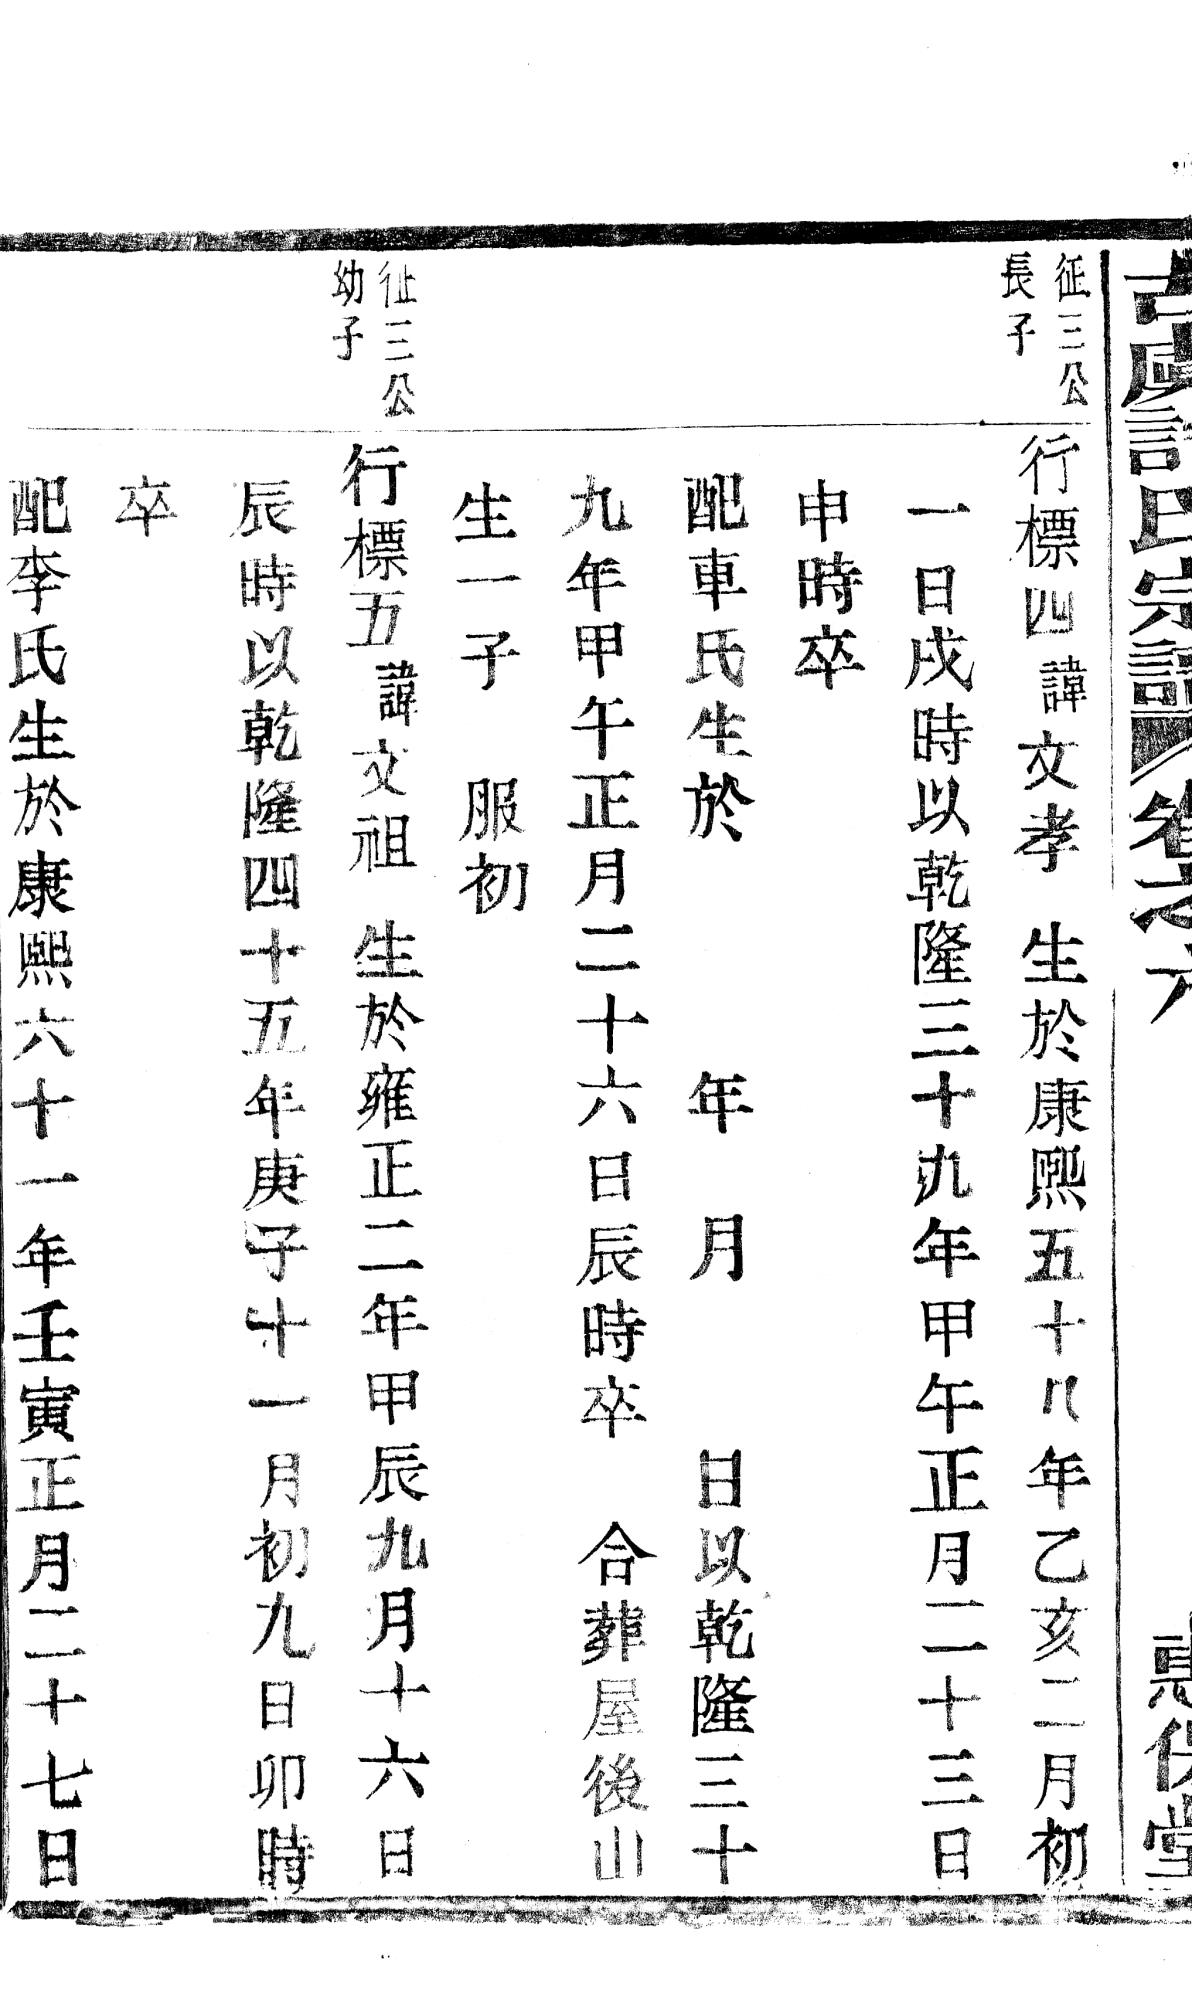 古虞許氏宗譜 卷之六 惠 堂
征三公
長子
行標四諱文孝 生於康熙五十八年乙亥二月初
一日戌時以乾隆三十九年甲午正月二十三日
申時卒
配車氏生於 年 月 日以乾隆三十
九年甲午正月二十六日辰時卒 合葬屋後山
生一子 服初
征三公
幼子
行標五諱文祖 生於雍正二年甲辰九月十六日
辰時以乾隆四十五年庚子十一月初九日卯時
卒
配李氏生於康熙六十一年壬寅正月二十七日